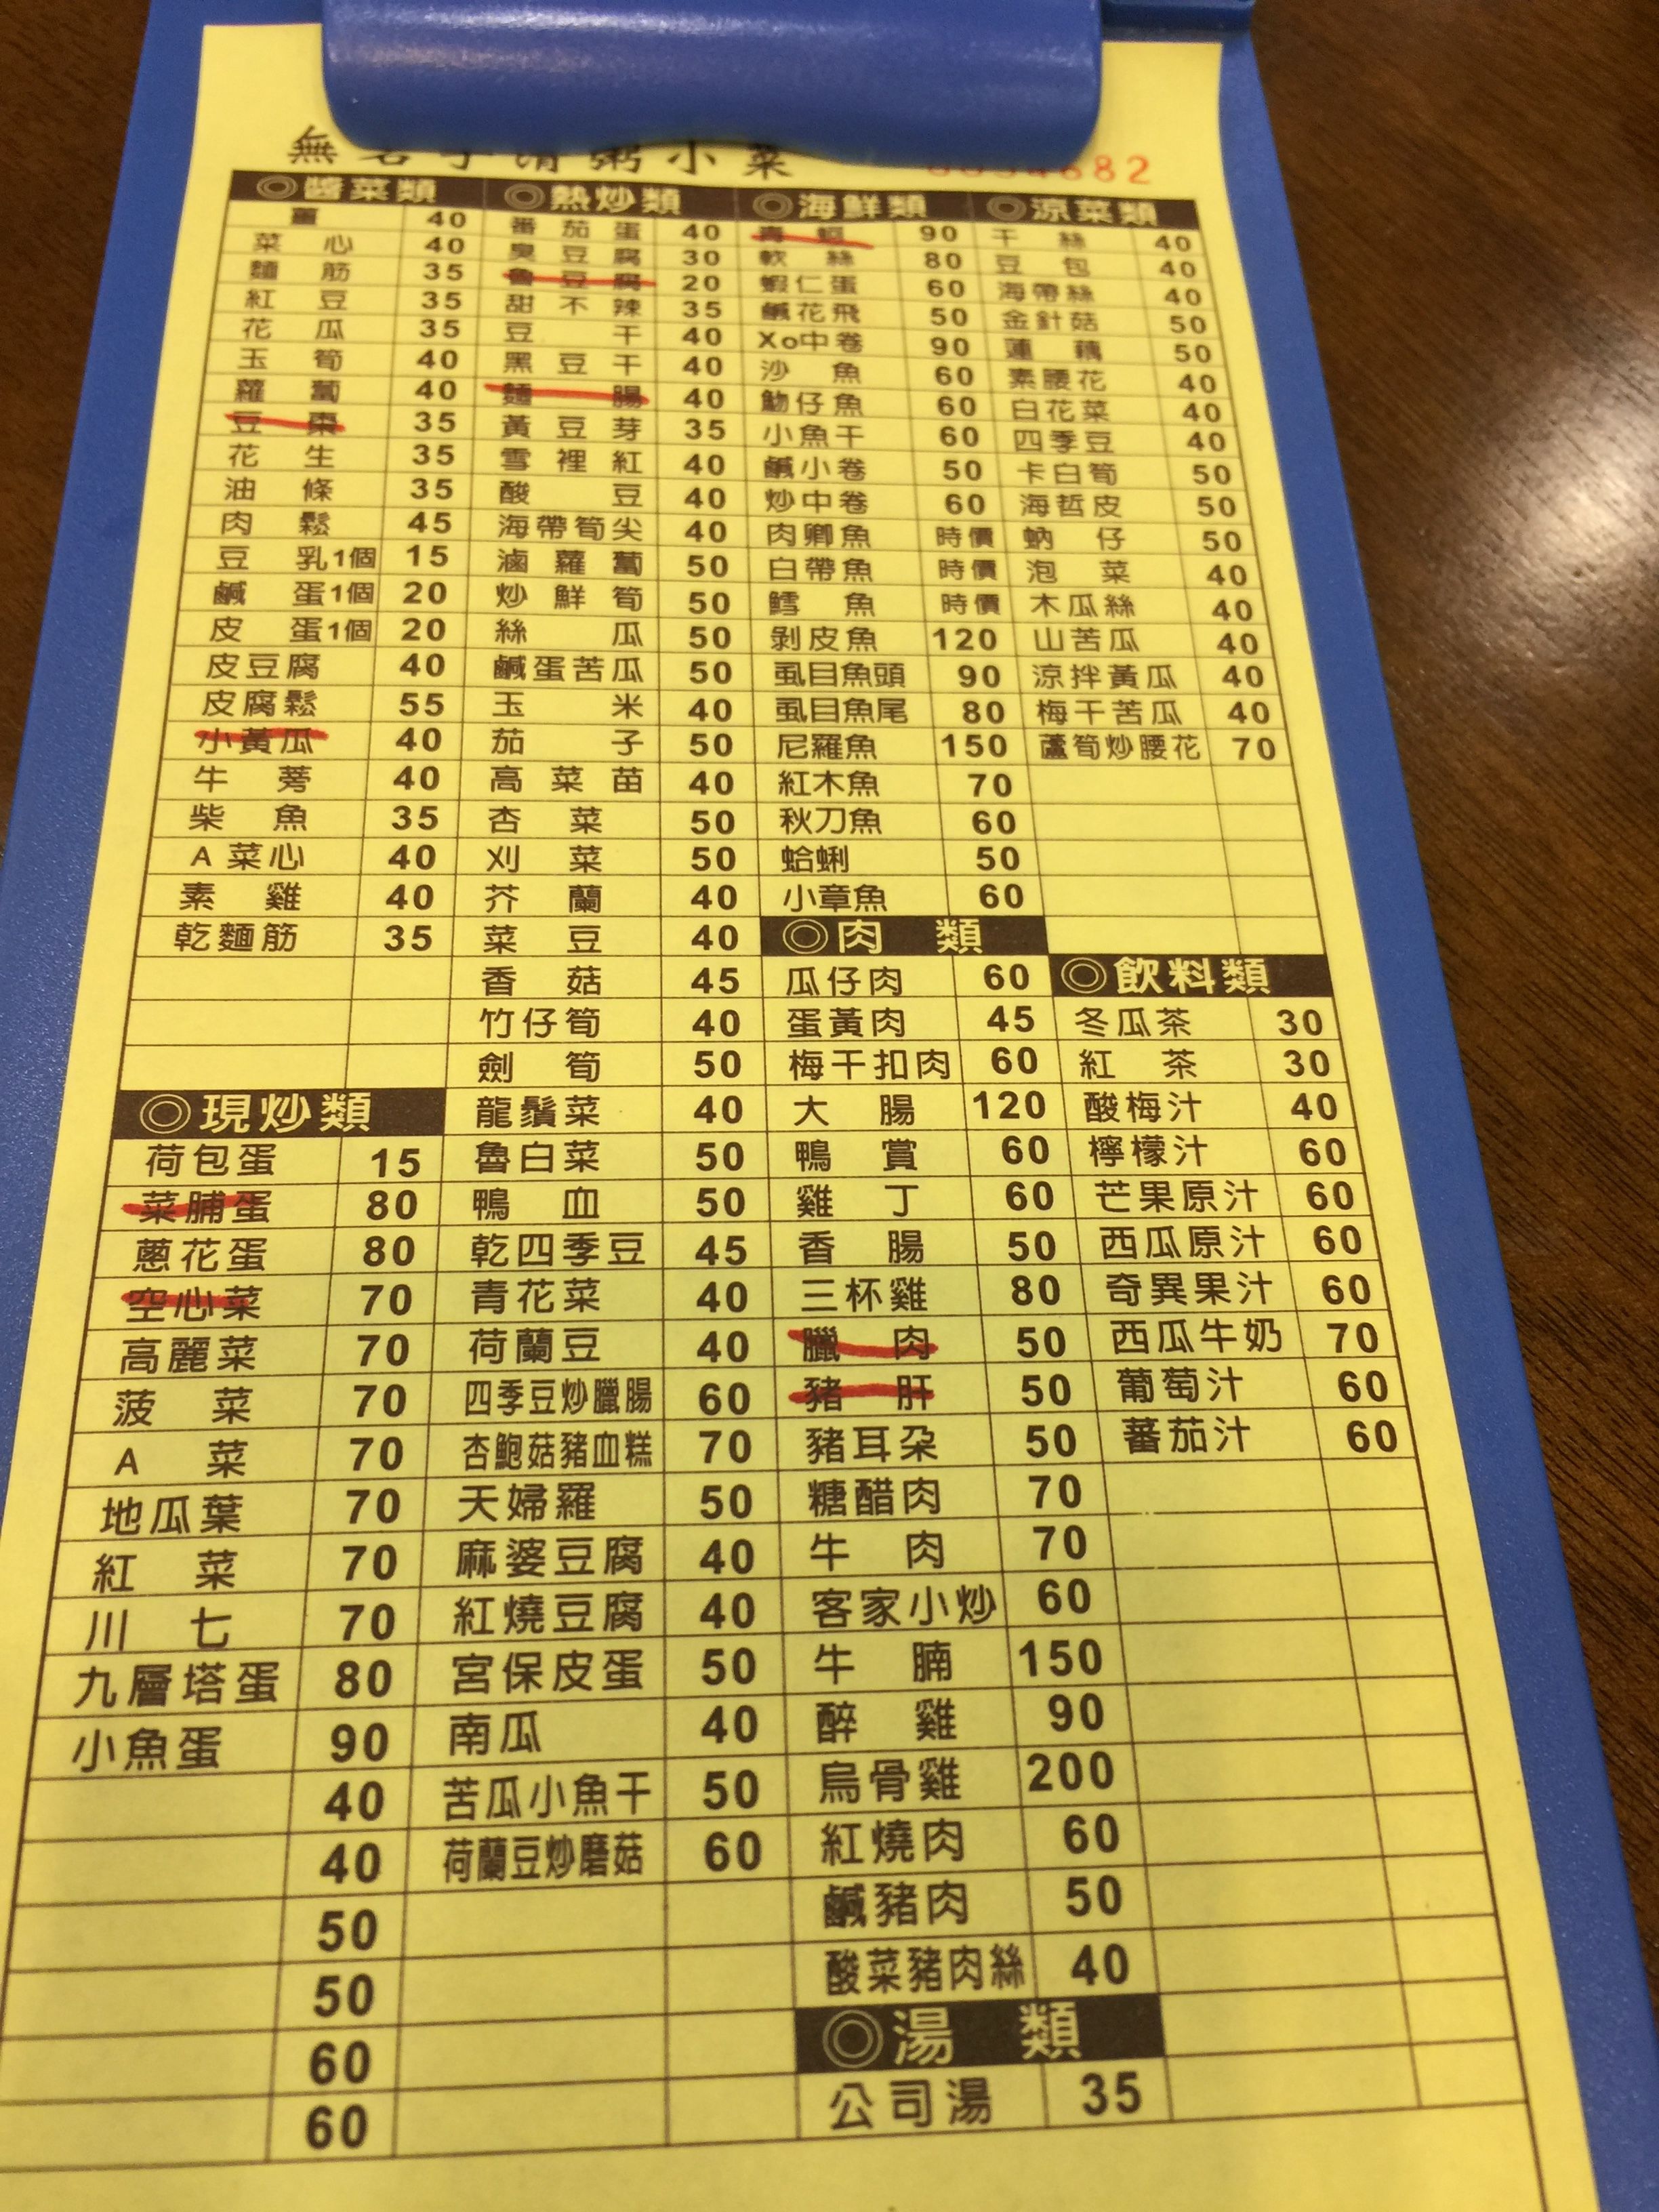 無名子清粥小菜
◎醬菜類
薑 40
菜心 40
麵筋 35
紅豆 35
花瓜 35
玉筍 40
蘿蔔 40
豆棗 35
花生 35
油條 35
肉鬆 45
豆乳1個 15
鹹蛋1個 20
皮蛋1個 20
皮豆腐 40
皮腐鬆 55
小黃瓜 40
牛蒡 40
柴魚 35
A菜心 40
素雞 40
乾麵筋 35
◎現炒類
荷包蛋 15
菜脯蛋 80
蔥花蛋 80
空心菜 70
高麗菜 70
菠菜 70
A菜 70
地瓜葉 70
紅菜 70
川七 70
九層塔蛋 80
小魚蛋 90
40
40
50
50
60
60
◎熱炒類
番茄蛋 40
臭豆腐 30
魯豆腐 20
甜不辣 35
豆干 40
黑豆干 40
麵腸 40
黃豆芽 35
雪裡紅 40
酸豆 40
海帶筍尖 40
滷蘿蔔 50
炒鮮筍 50
絲瓜 50
鹹蛋苦瓜 50
玉米 40
茄子 50
高菜苗 40
杏菜 50
刈菜 50
芥蘭 40
菜豆 40
香菇 45
竹仔筍 40
劍筍 50
龍鬚菜 40
魯白菜 50
鴨血 50
乾四季豆 45
青花菜 40
荷蘭豆 40
四季豆炒臘腸 60
杏鮑菇豬血糕 70
天婦羅 50
麻婆豆腐 40
紅燒豆腐 40
宮保皮蛋 50
南瓜 40
苦瓜小魚干 50
荷蘭豆炒磨菇 60
◎海鮮類
青蚵 90
軟絲 80
蝦仁蛋 60
鹹花飛 50
Xo中卷 90
沙魚 60
魩仔魚 60
小魚干 60
鹹小卷 50
炒中卷 60
肉鯽魚 時價
白帶魚 時價
鱈魚 時價
剝皮魚 120
虱目魚頭 90
虱目魚尾 80
尼羅魚 150
紅木魚 70
秋刀魚 60
蛤蜊 50
小章魚 60
◎肉類
瓜仔肉 60
蛋黃肉 45
梅干扣肉 60
大腸 120
鴨賞 60
雞丁 60
香腸 50
三杯雞 80
臘肉 50
豬肝 50
豬耳朶 50
糖醋肉 70
牛肉 70
客家小炒 60
牛腩 150
醉雞 90
烏骨雞 200
紅燒肉 60
鹹豬肉 50
酸菜豬肉絲 40
◎湯類
公司湯 35
◎涼菜類
干絲 40
豆包 40
海帶絲 40
金針菇 50
蓮藕 50
素腰花 40
白花菜 40
四季豆 40
卡白筍 50
海哲皮 50
蚋仔 50
泡菜 40
木瓜絲 40
山苦瓜 40
涼拌黃瓜 40
梅干苦瓜 40
蘆筍炒腰花 70
◎飲料類
冬瓜茶 30
紅茶 30
酸梅汁 40
檸檬汁 60
芒果原汁 60
西瓜原汁 60
奇異果汁 60
西瓜牛奶 70
葡萄汁 60
蕃茄汁 60